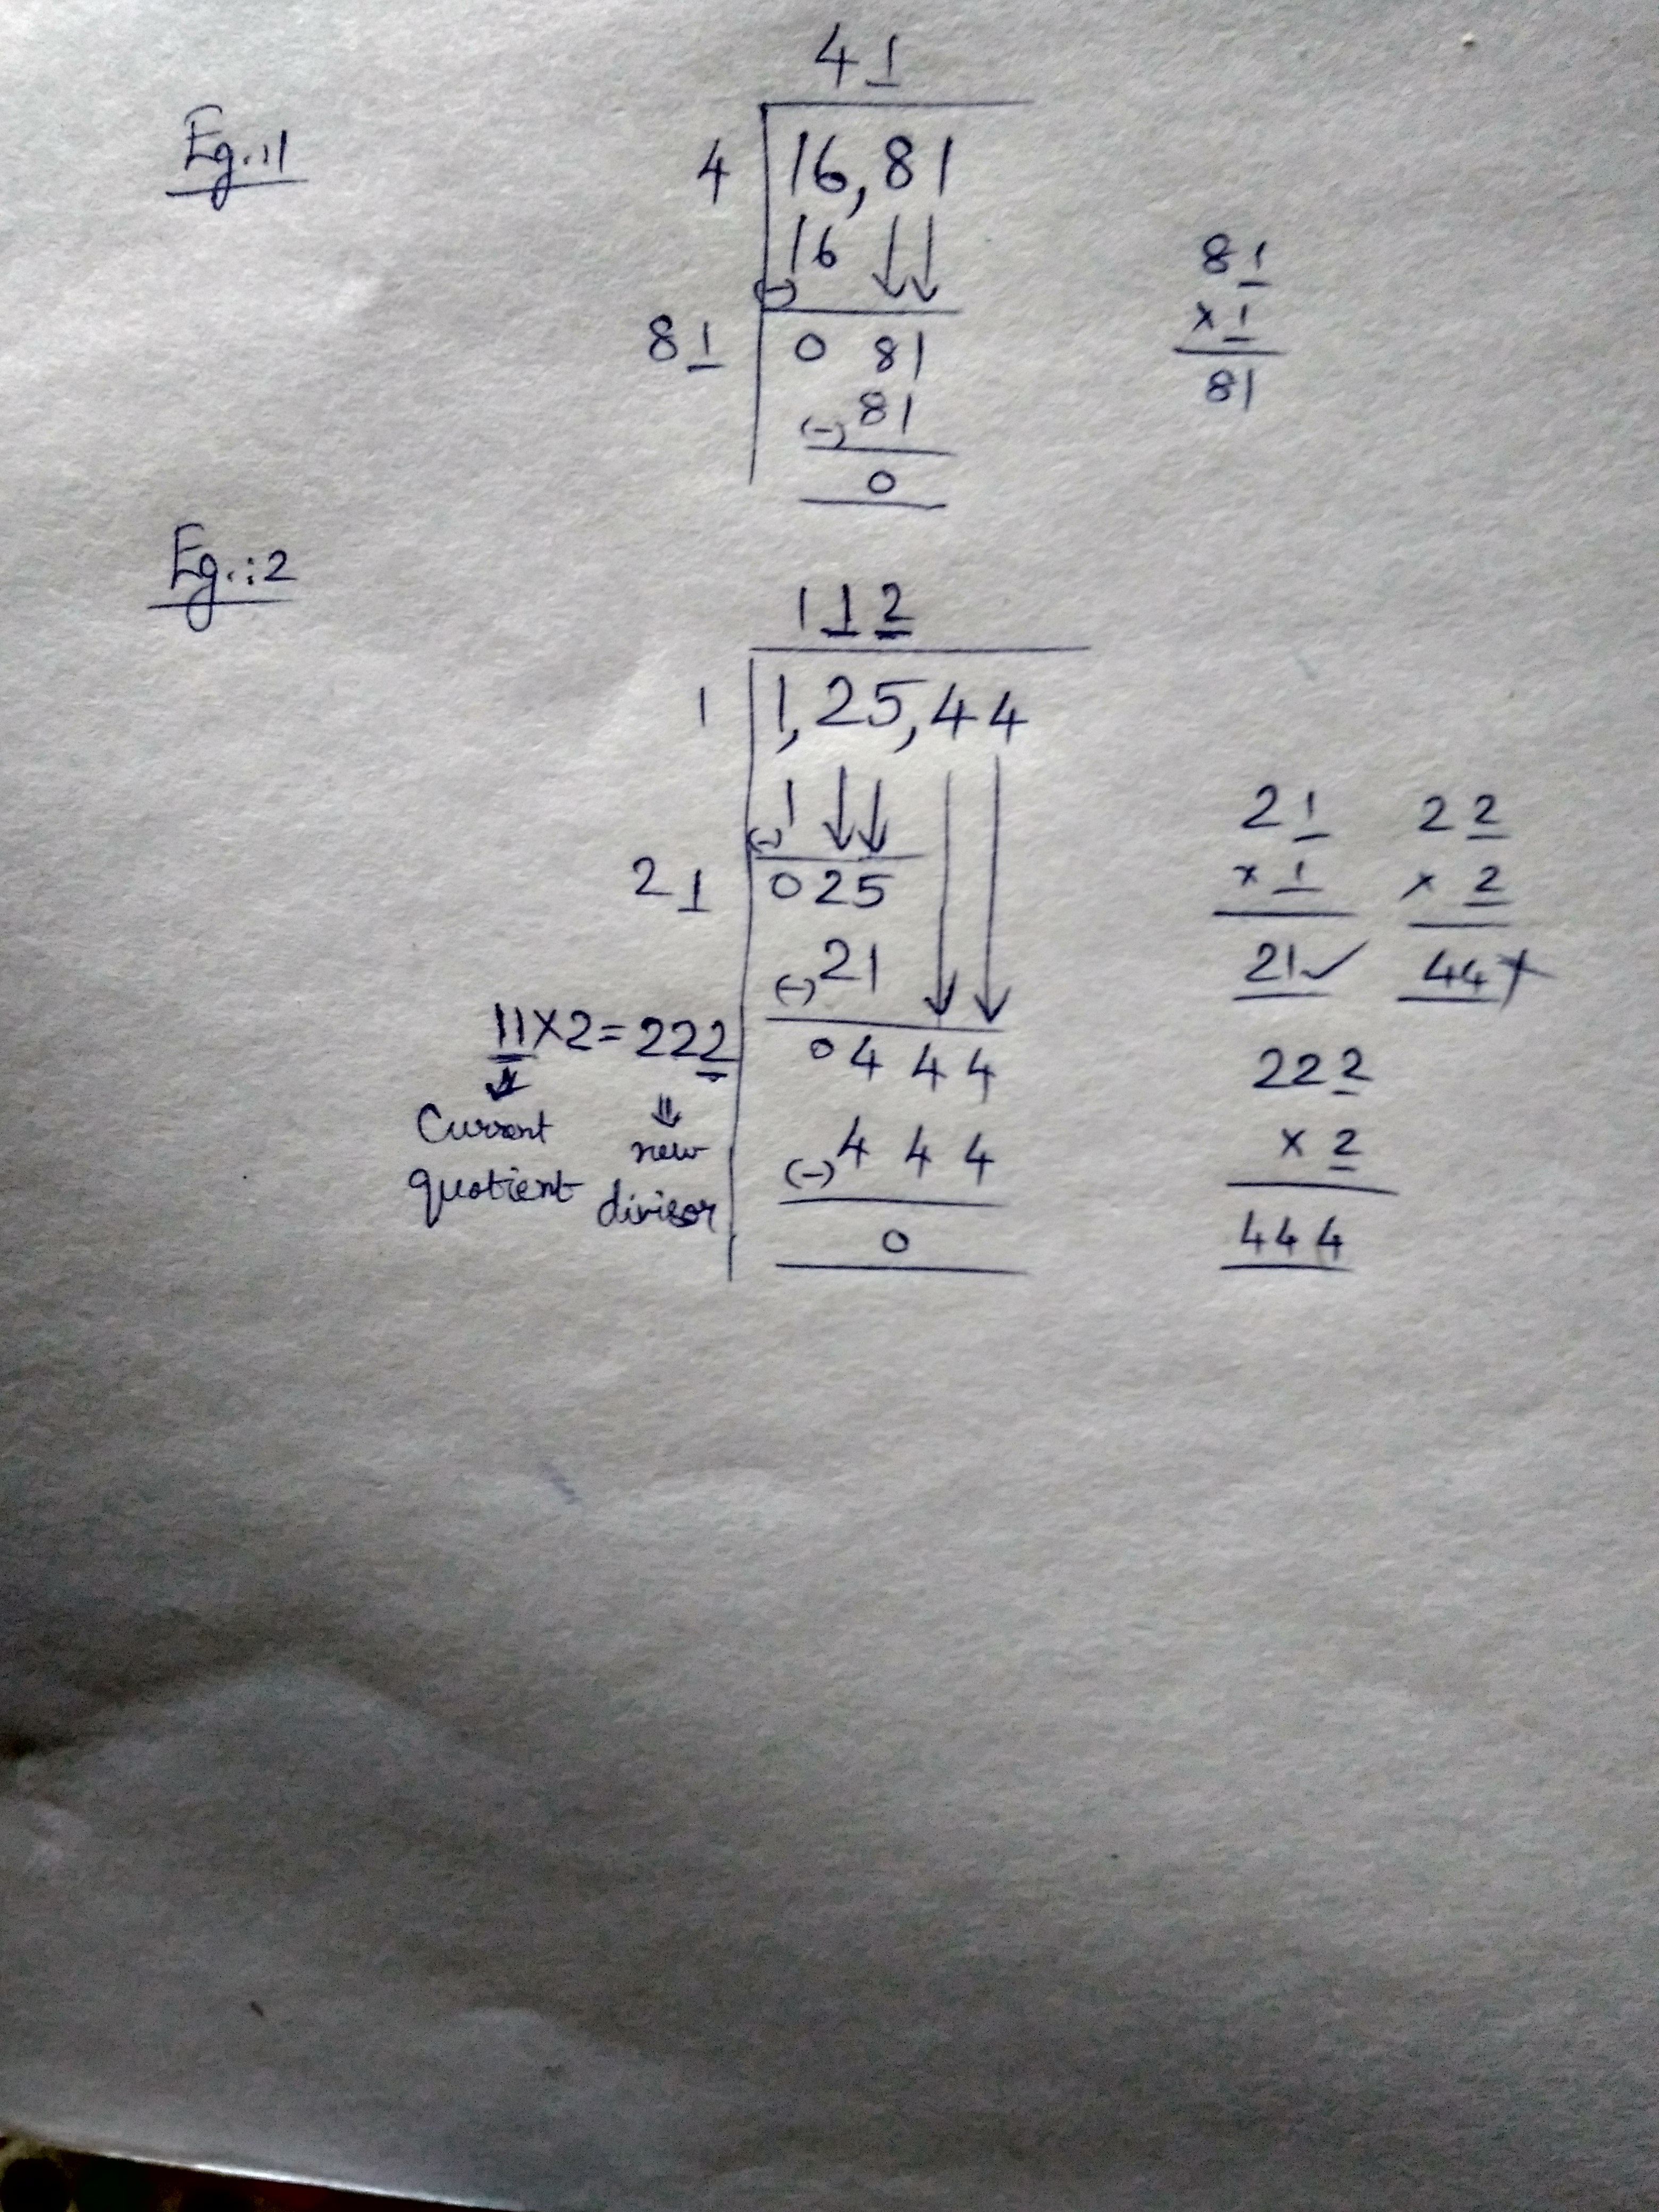 Eg.:1
41
4 16,81
16
(-)
81 0 81
(-) 81
0
81
× 1
81
Eg.:2
112
1 1,25,44
(-) 1
21 025
(-) 21
11×2=222 0444
Current quotient
new divisor
(-) 444
0
21
× 1
21✓
22
× 2
44✗
222
× 2
444